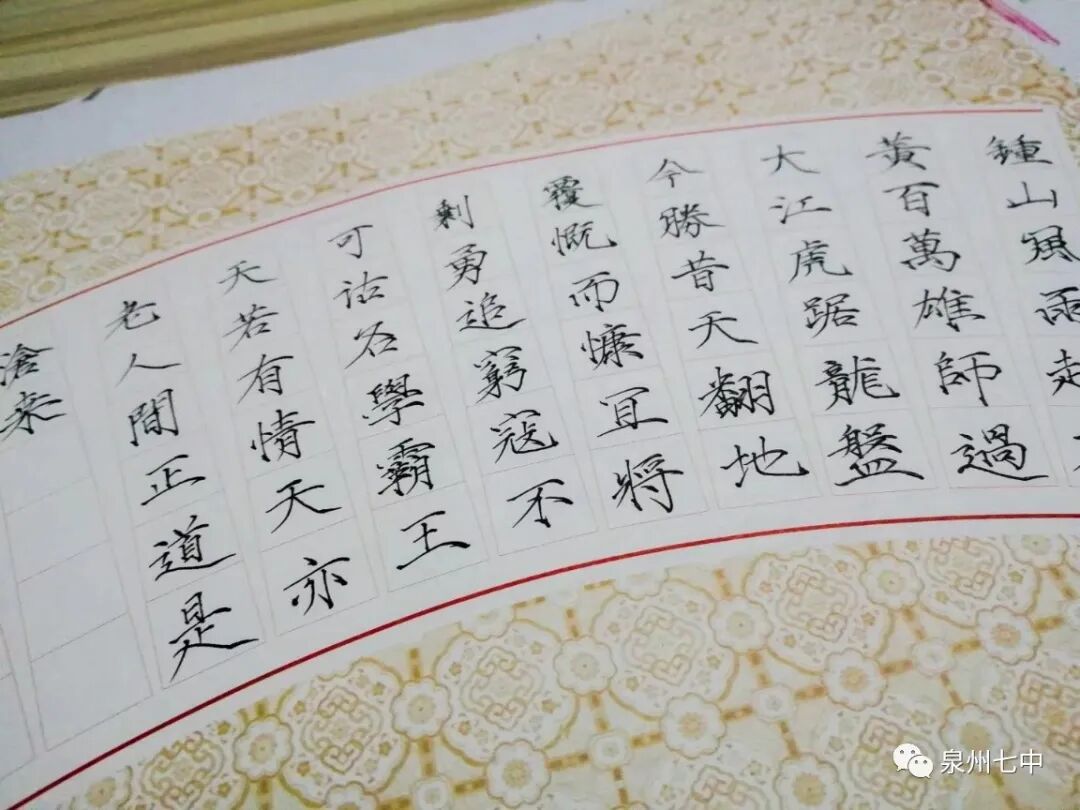 鍾山風雨起
黃百萬雄師過
大江虎踞龍盤
今勝昔天翻地
覆慨而慷宜將
剩勇追窮寇不
可沽名學霸王
天若有情天亦
老人間正道是
滄桑
泉州七中